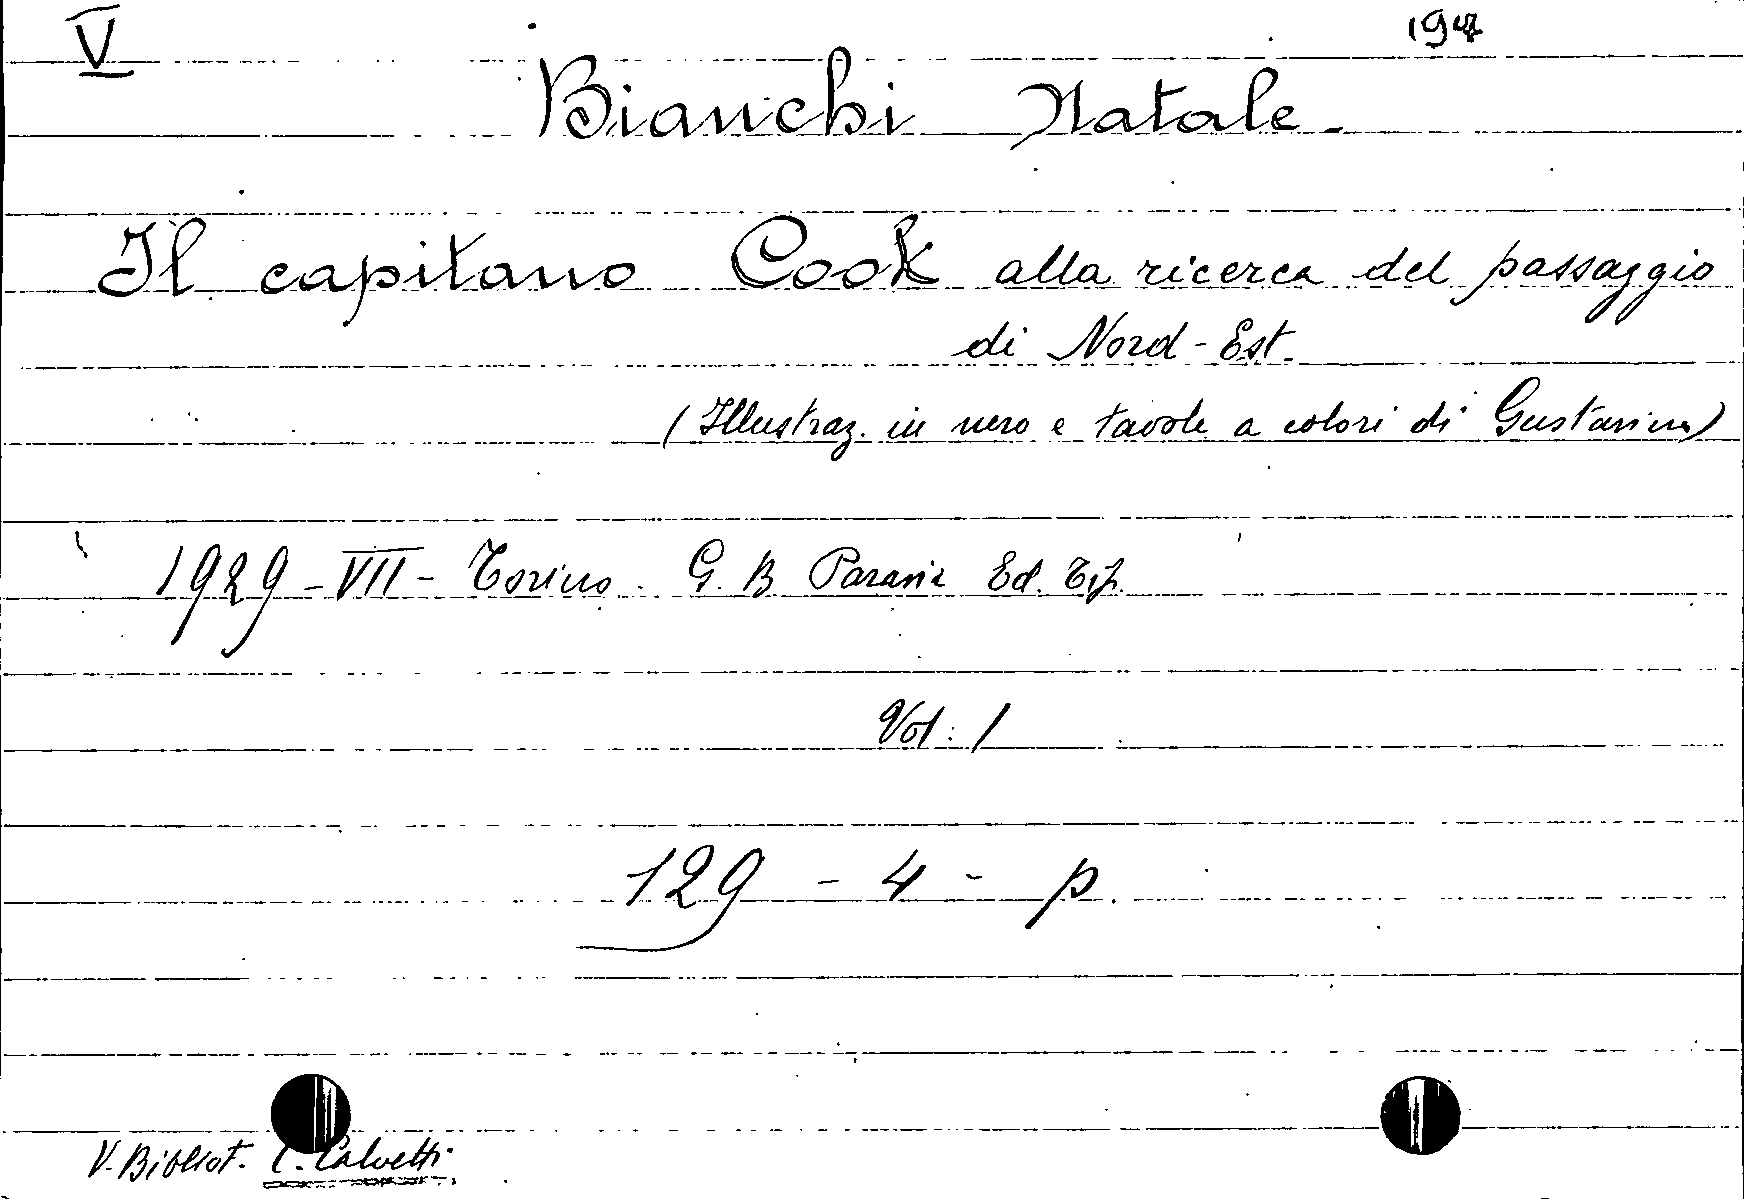 V 194
Bianchi Natale.
Il capitano Cook alla ricerca del passaggio
di Nord-Est.
(Illustraz. in nero e tavole a colori di Gustavino)
1929 - VII - Torino. G. B. Paravia Ed. Tip.
Vol: 1
129 - 4 - p.
V. Bibliot. C. Calvetti